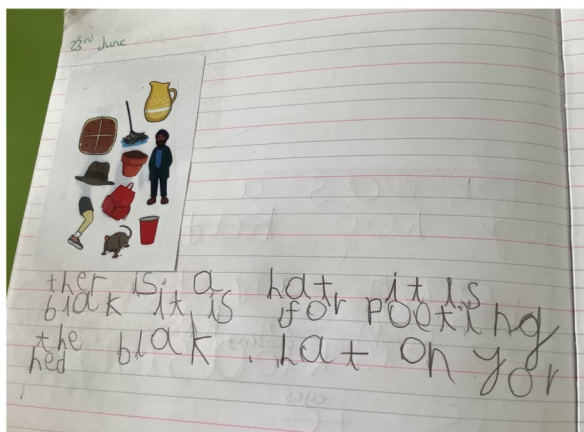 23rd June
ther is a hat it is
blak it is for poeting
the blak . hat on yor
hed